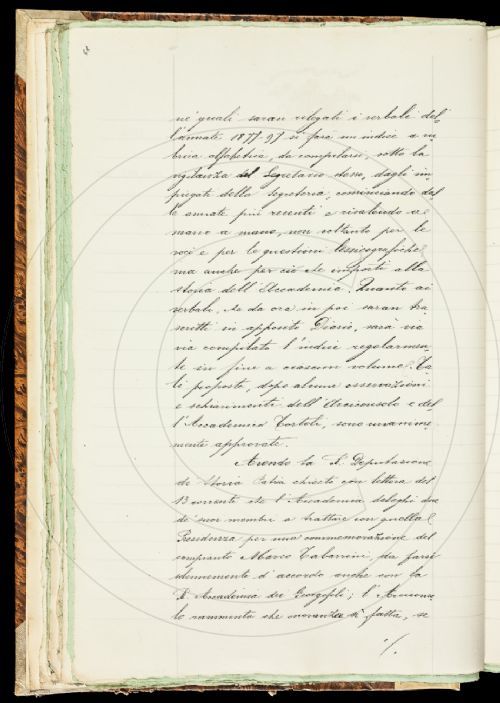 ne' quali saran rilegati i verbali del-
l'annate 1877-97 si farà un indice a ru-
brica alfabetica, da compilarsi, sotto la
vigilanza del Segretario stesso, dagli im-
piegati della Segreteria, cominciando dal-
le annate più recenti e risalendo a
mano a mano, non soltanto per le
voci e per le questioni lessicografiche
ma anche per ciò che importi alla
storia dell'Accademia. Quanto ai
verbali, che da ora in poi saran tra-
scritti in apposito Diario, sarà via
via compilato l'indice regolarmen-
te in fine a ciascun volume. Ta-
li proposte, dopo alcune osservazioni
e schiarimenti dell'Arciconsolo e del-
l'Accademico Tortoli, sono unanime-
mente approvate.
Avendo la R. Deputazione
di Storia Patria chiesto con lettera del
13 corrente che l'Accademia deleghi due
de' suoi membri a trattare con quella
Presidenza per una commemorazione del
compianto Marco Tabarrini, da farsi
solennemente d'accordo anche con la
R. Accademia dei Georgofili; l'Arciconso-
lo rammenta che onoranze sì fatte, se
./.